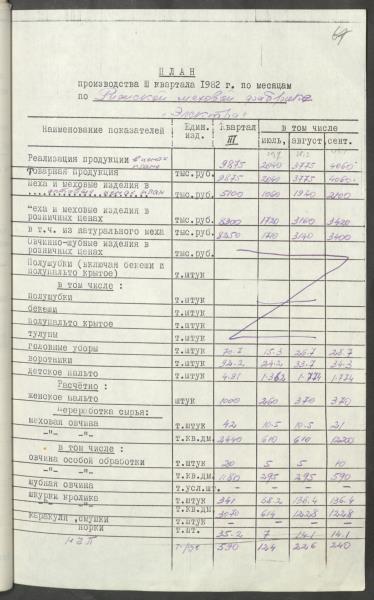 ПЛАН
производства III квартала 1982 г. по месяцам
по Рижской меховой фабрике
"Электра"
Наименование показателей Един. изд. Квартал III в том числе
июль, август, сент.
Реализация продукции в ценах плана 9875 2040 3775 4060
Товарная продукция тыс.руб. 9875 2040 3775 4060
Меха и меховые изделия в
оптовых ценах план тыс.руб. 5100 1060 1940 2100
Меха и меховые изделия в
розничных ценах тыс.руб. 8300 1720 3160 3420
в т.ч. из натурального меха тыс.руб. 8250 1710 3140 3400
Овчинно-шубные изделия в
розничных ценах тыс.руб.
Полушубки (включая бекеши и
полупальто крытое) т.штук
в том числе :
полушубки т.штук
бекеши т.штук
полупальто крытое т.штук
тулупы т.штук
головные уборы т.штук 70.7 15.3 26.7 28.7
воротники т.штук 92.2 24.2 33.7 34.3
детское пальто т.штук 4.91 1.362 1.774 1.774
Расчётно :
женское пальто штук 1000 260 370 370
Переработка сырья:
меховая овчина т.штук 42 10.5 10.5 21
-"- -"- т.кв.дм. 2440 610 610 1220
в том числе :
овчина особой обработки т.штук 20 5 5 10
-"- -"- т.кв.дм. 1180 295 295 590
шубная овчина т.усл.шт. - - - -
шкурки кролика т.штук 341 68.2 136.4 136.4
-"- т.кв.дм. 3070 614 1228 1228
каракуля, смушки т.штук - - - -
норки т.шт. 35.2 7 14.1 14.1
НЗП т.руб 590 124 226 240